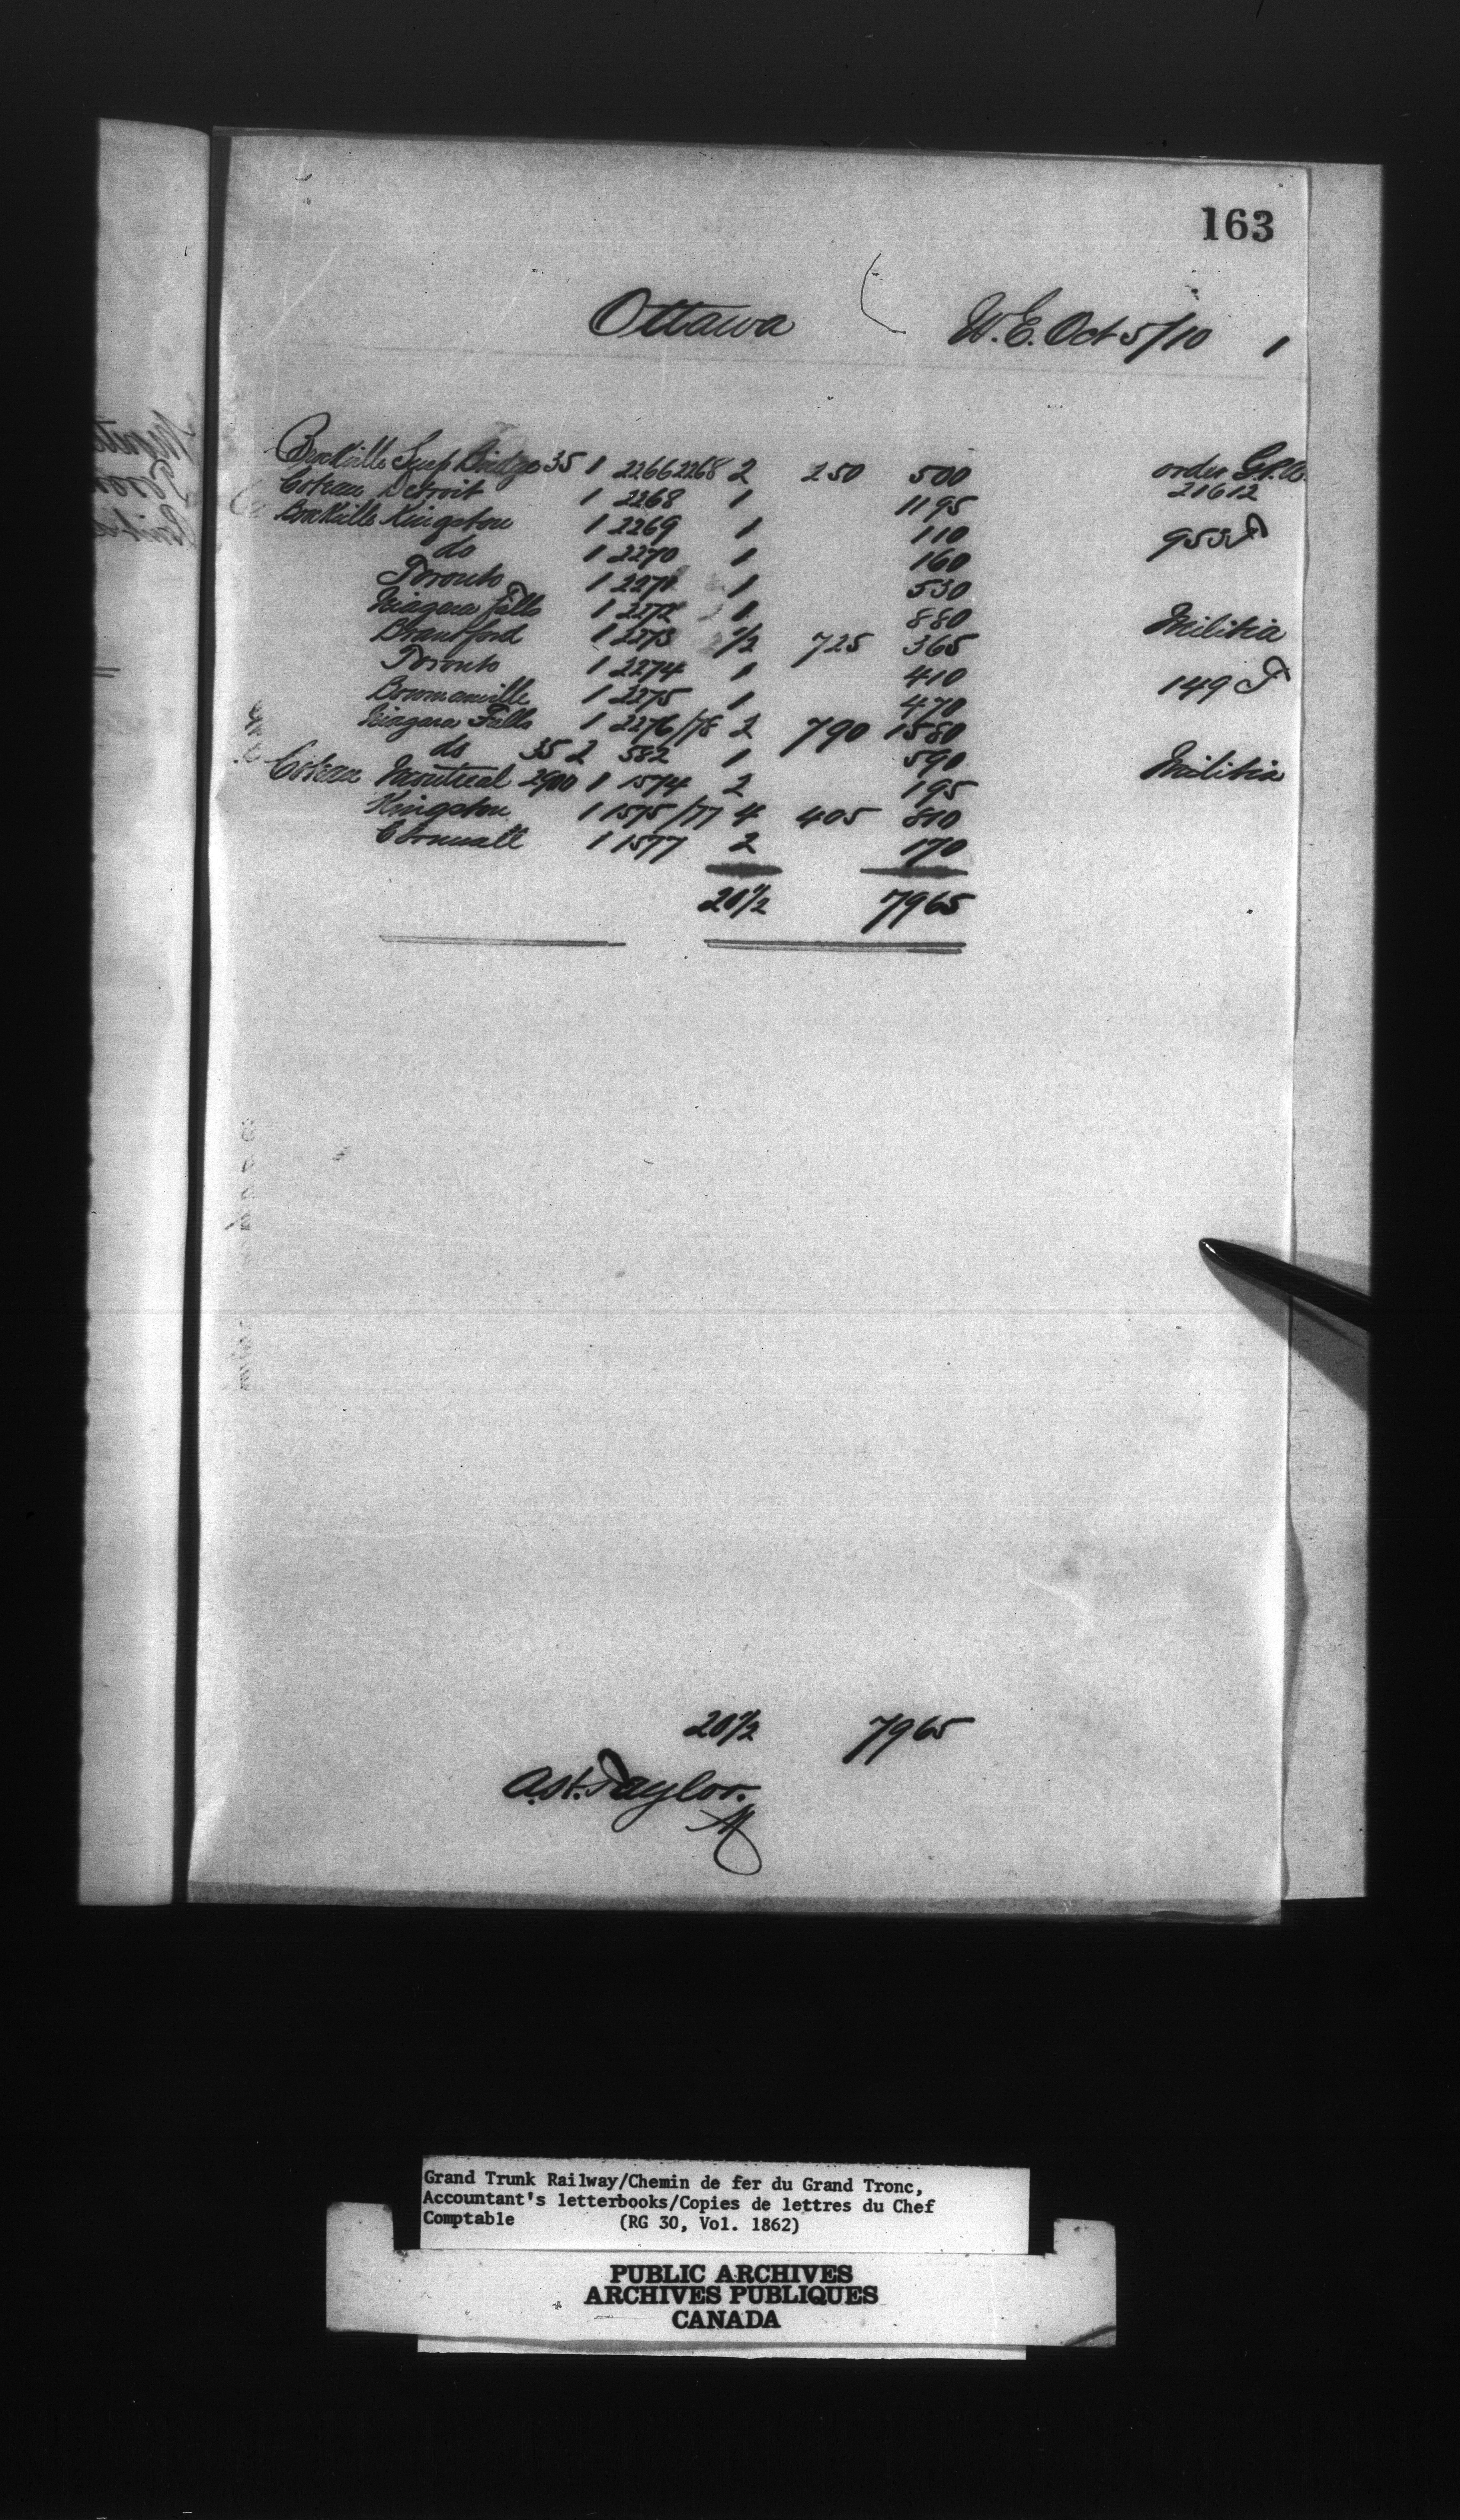 163
Ottawa W.E. Oct 5/10 1
Brockville Susp Bridge 35 1 2266 2268 2 250 500 order G.P.O.
Coteau Detroit 1 2268 1 1195 21612
Brockville Kingston 1 2269 1 110 953 T
do 1 2270 1 160
Toronto 1 2271 1 530
Niagara Falls 1 2272 1 880 Militia
Brantford 1 2273 1/2 725 365
Toronto 1 2274 1 410 149 T
Bowmanville 1 2275 1 470
Niagara Falls 1 2276/78 2 790 1580
do 35 2 582 1 590 Militia
Coteau Montreal 2900 1 1574 2 195
Kingston 1 1575/77 4 405 810
Cornwall 1 1577 2 170
20 1/2 7965
20 1/2 7965
A.H. Taylor.
Grand Trunk Railway/Chemin de fer du Grand Tronc,
Accountant's letterbooks/Copies de lettres du Chef
Comptable (RG 30, Vol. 1862)
PUBLIC ARCHIVES
ARCHIVES PUBLIQUES
CANADA